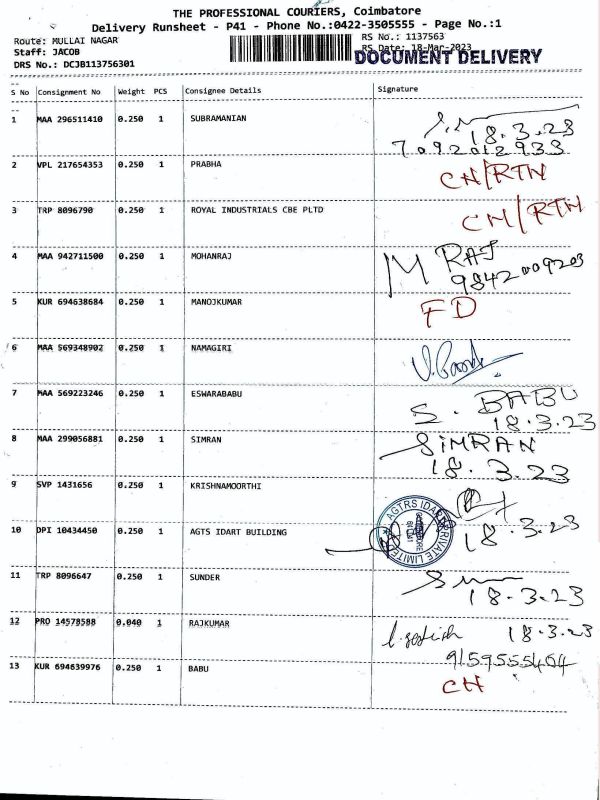 THE PROFESSIONAL COURIERS, Coimbatore
Delivery Runsheet - P41 - Phone No.:0422-3505555 - Page No.:1
Route: MULLAI NAGAR RS No.: 1137563
Staff: JACOB RS Date: 18-Mar-2023
DRS No.: DCJB113756301 DOCUMENT DELIVERY
S No Consignment No Weight PCS Consignee Details Signature
1 MAA 296511410 0.250 1 SUBRAMANIAN
18.3.23
7092012933
2 VPL 217654353 0.250 1 PRABHA CH/RTN
3 TRP 8096790 0.250 1 ROYAL INDUSTRIALS CBE PLTD CH/RTN
4 MAA 942711500 0.250 1 MOHANRAJ M RAJ
9842009203
5 KUR 694638684 0.250 1 MANOJKUMAR FD
6 MAA 569348902 0.250 1 NAMAGIRI
7 MAA 569223246 0.250 1 ESWARABABU S. BABU
18.3.23
8 MAA 299056881 0.250 1 SIMRAN SIMRAN
18.3.23
9 SVP 1431656 0.250 1 KRISHNAMOORTHI
10 DPI 10434450 0.250 1 AGTS IDART BUILDING 18.3.23
AGTRS IDART PRIVATE LIMITED
11 TRP 8096647 0.250 1 SUNDER
18.3.23
12 PRO 14578588 0.040 1 RAJKUMAR 18.3.23
9159555464
13 KUR 694639976 0.250 1 BABU CH